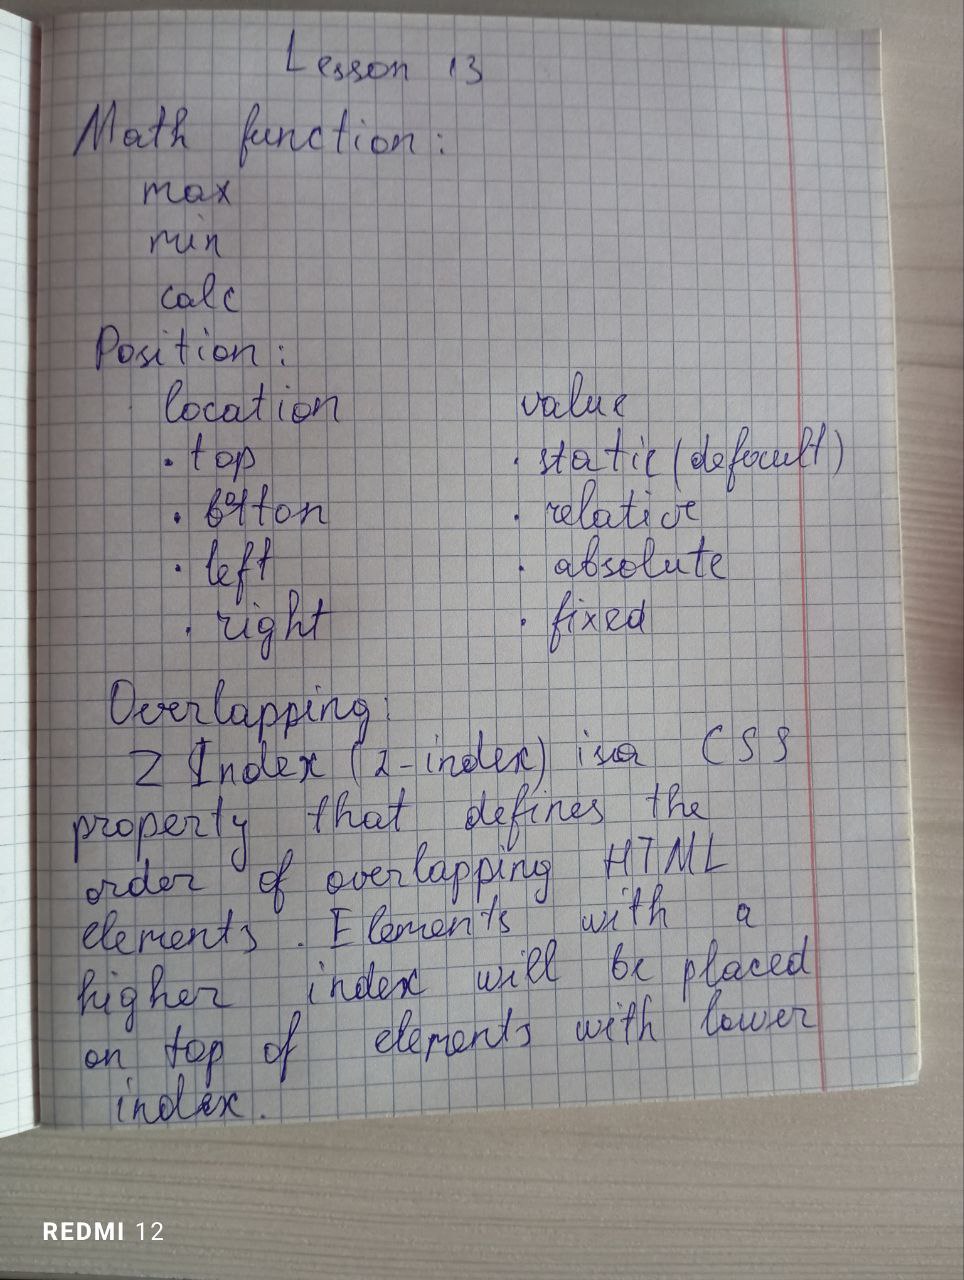 Lesson 13
Math function:
max
min
calc
Position:
location value
· top · static (default)
· botton · relative
· left · absolute
· right · fixed
Overlapping:
Z Index (z-index) is a CSS
property that defines the
order of overlapping HTML
elements. Elements with a
higher index will be placed
on top of elements with lower
index.
REDMI 12